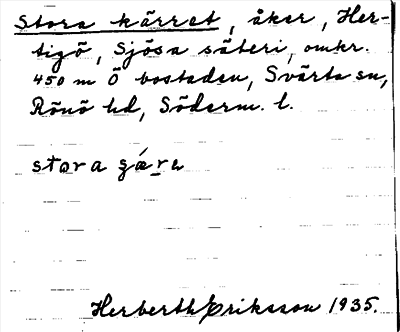 Stora kärret, åker, Her-
tigö, Sjösa säteri, omkr.
450 m Ö bostaden, Svärta sn,
Rönö hd, Söderm. l.
stora
Herberth Eriksson 1935.